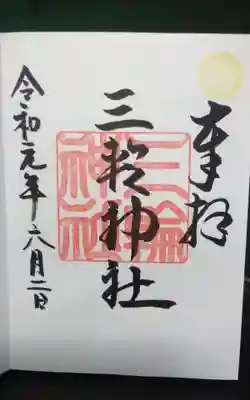 奉拝
三輪神社
三輪神社
令和元年六月二日